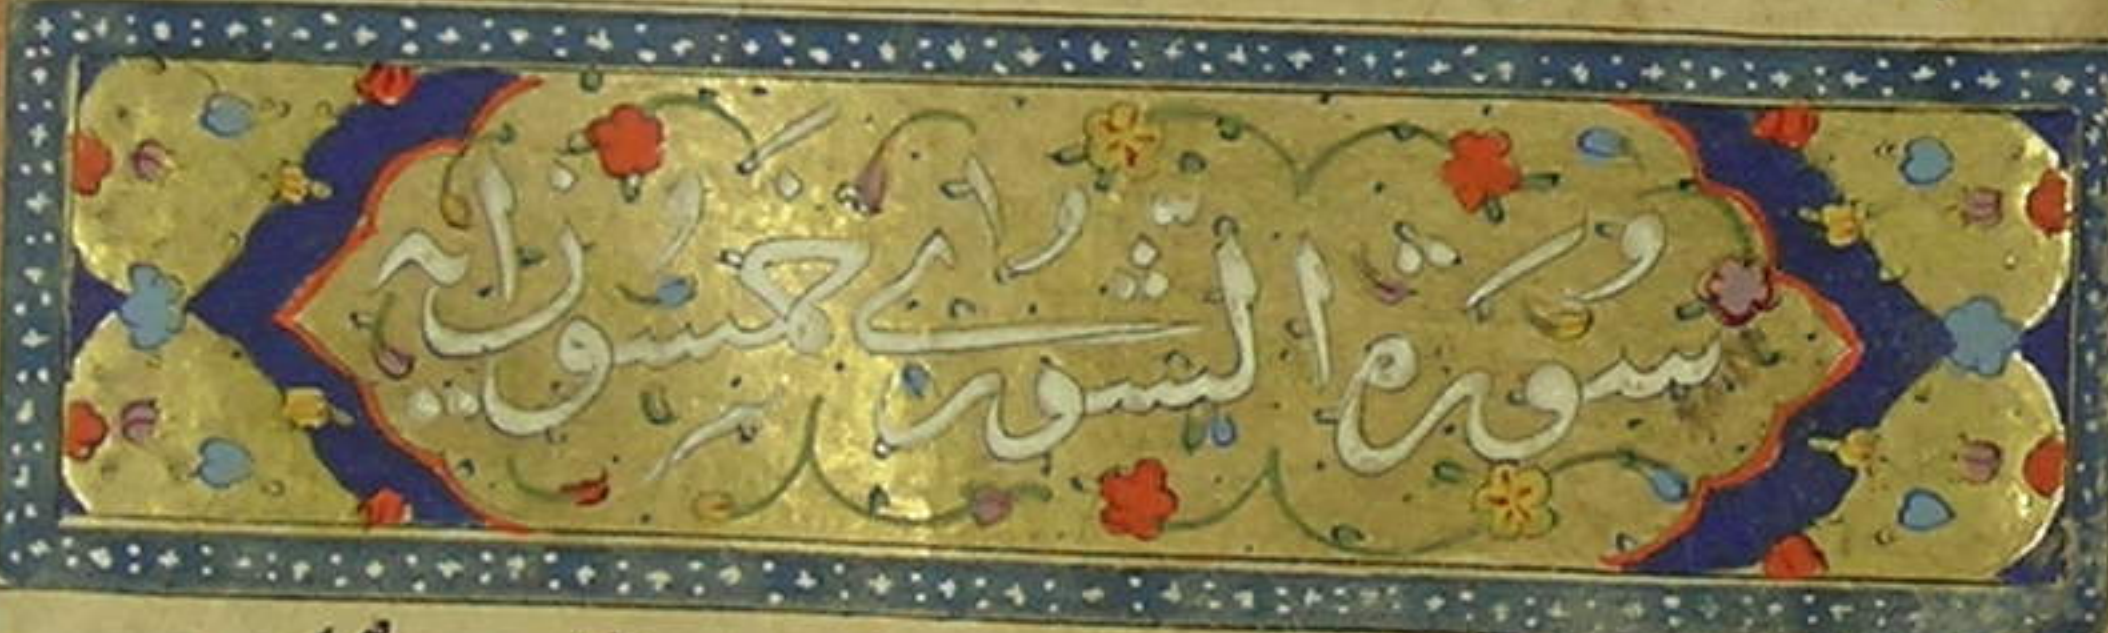 سورة الشورى خمسون اية